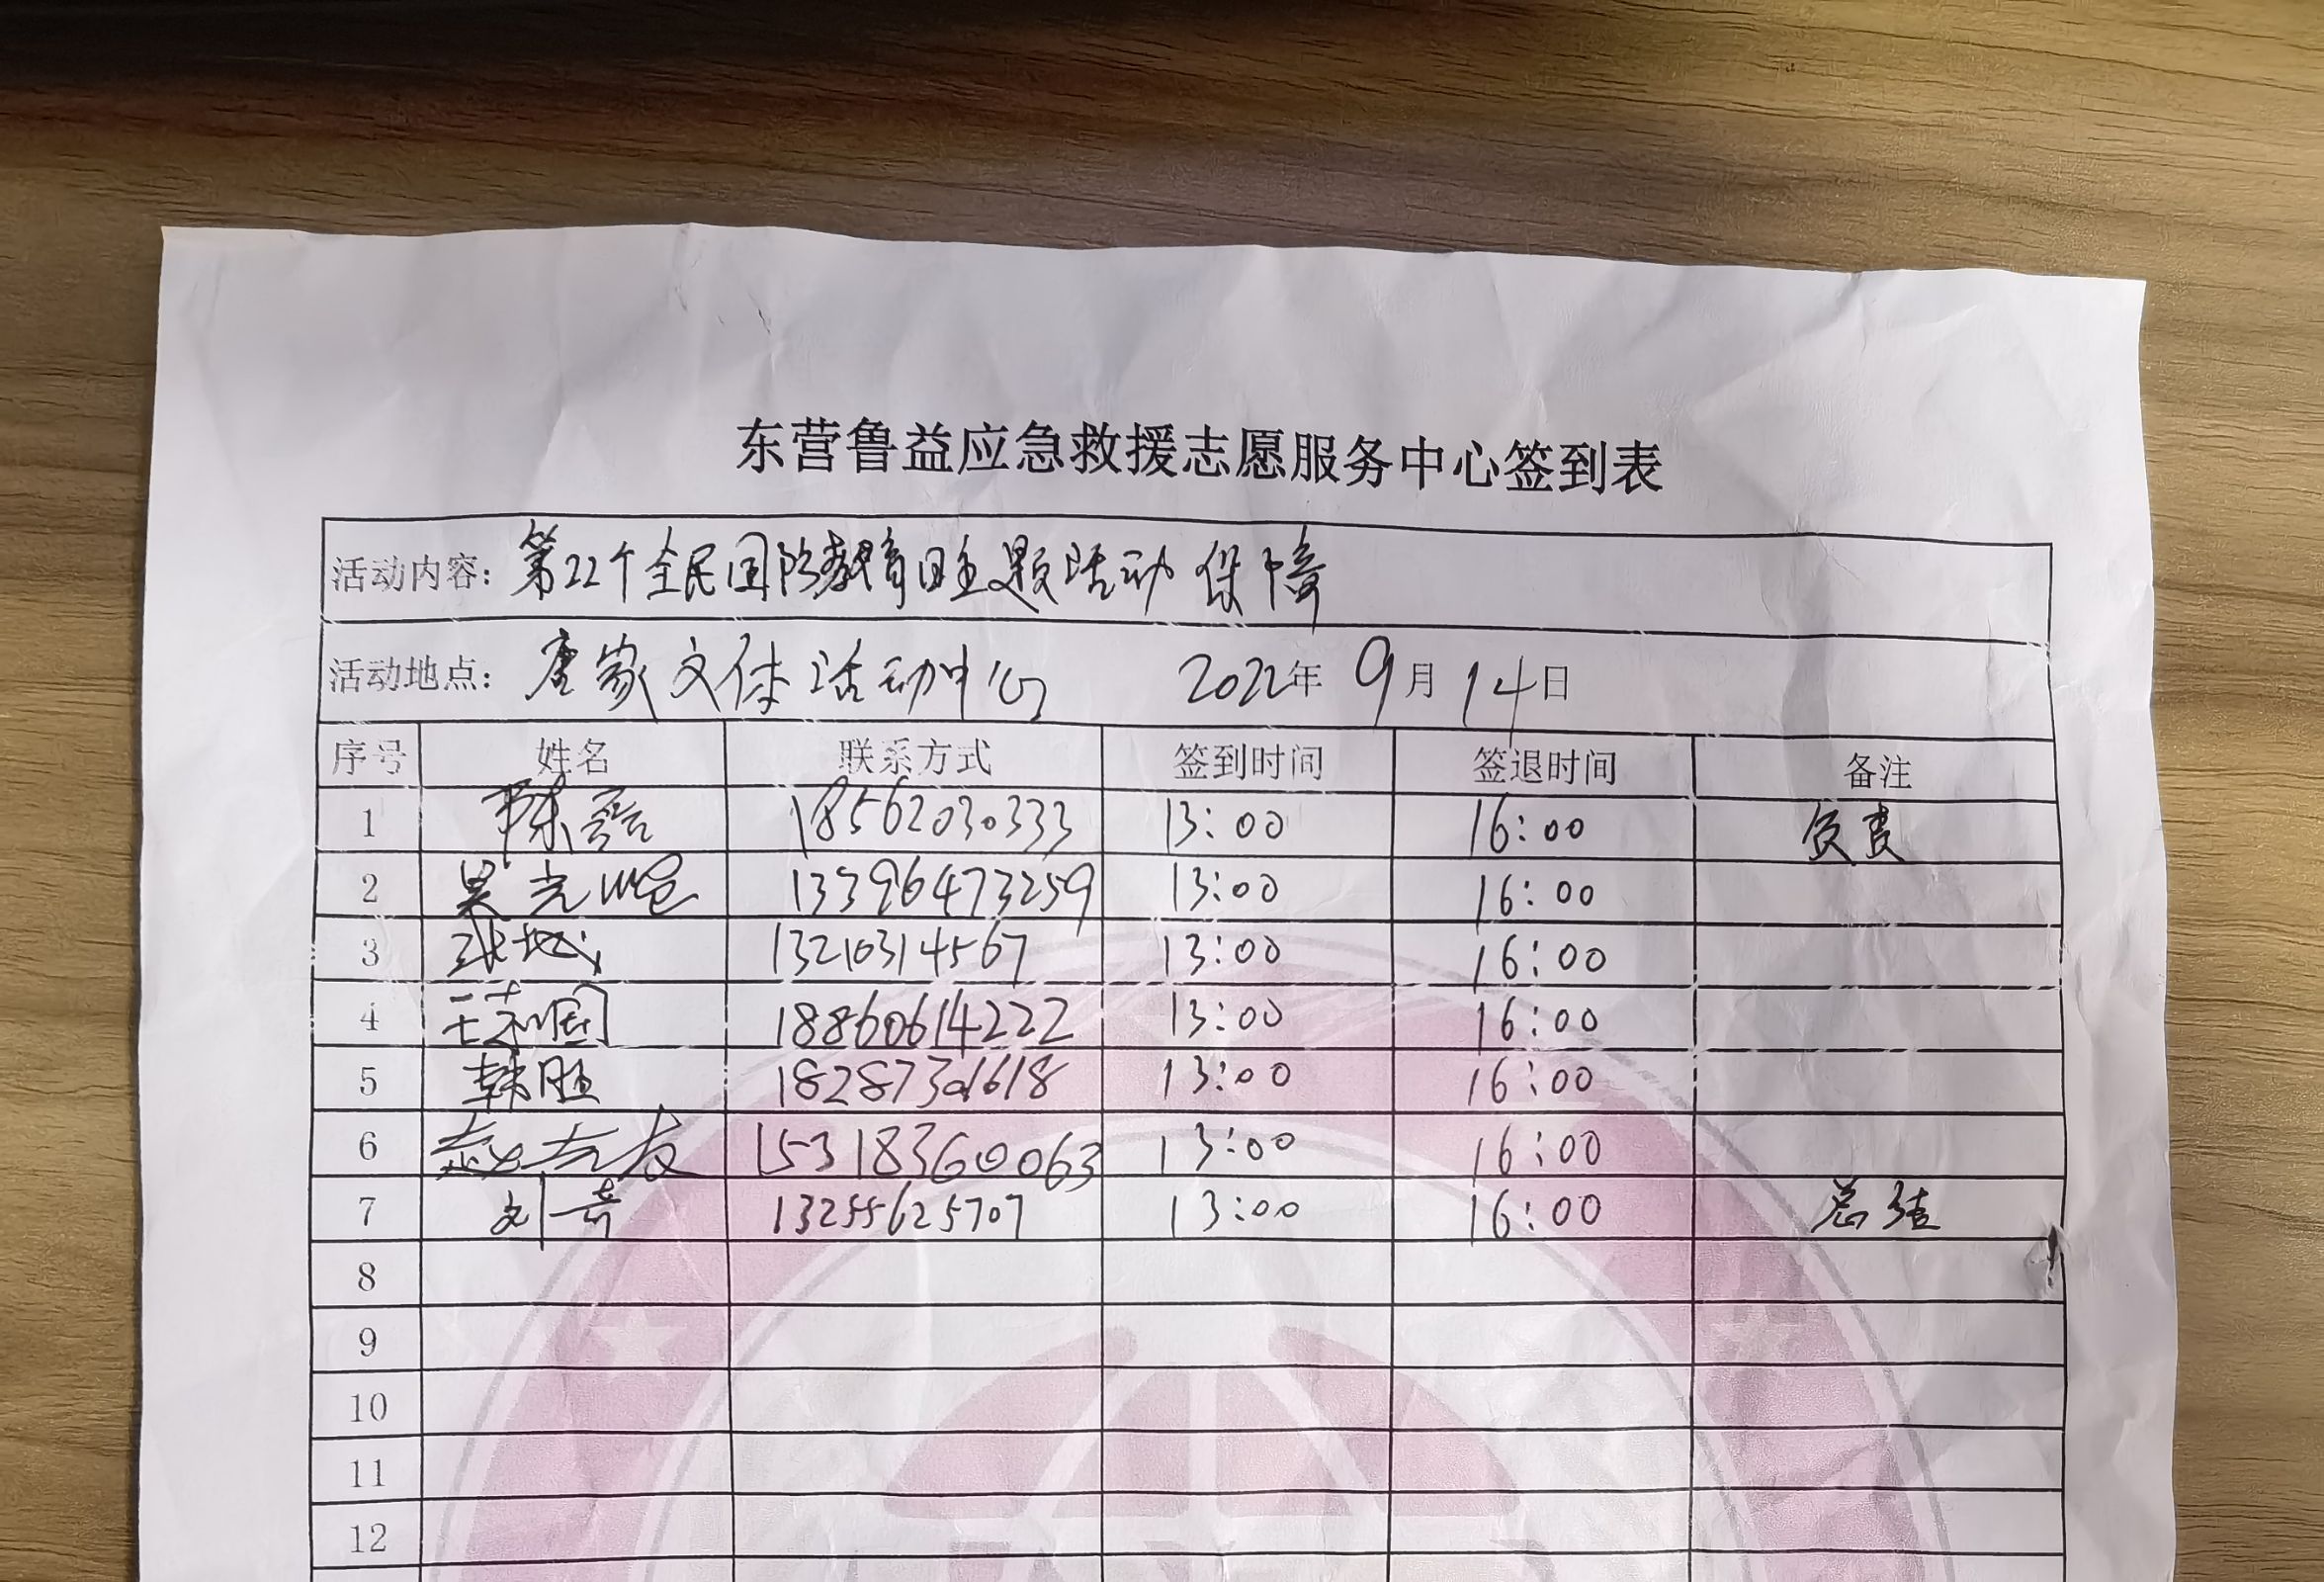 东营鲁益应急救援志愿服务中心签到表
活动内容: 第22个全民国防教育日主题活动 保障
活动地点: 唐家文体活动中心 2022年 9月 14日
序号 姓名 联系方式 签到时间 签退时间 备注
1 陈 18562030333 13:00 16:00 负责
2 吴光 13396473259 13:00 16:00
3 13210314567 13:00 16:00
4 18860614222 13:00 16:00
5 韩胜 13:00 16:00
6 赵 友 15318360063 13:00 16:00
7 刘奇 13255625707 13:00 16:00 总结
8
9
10
11
12